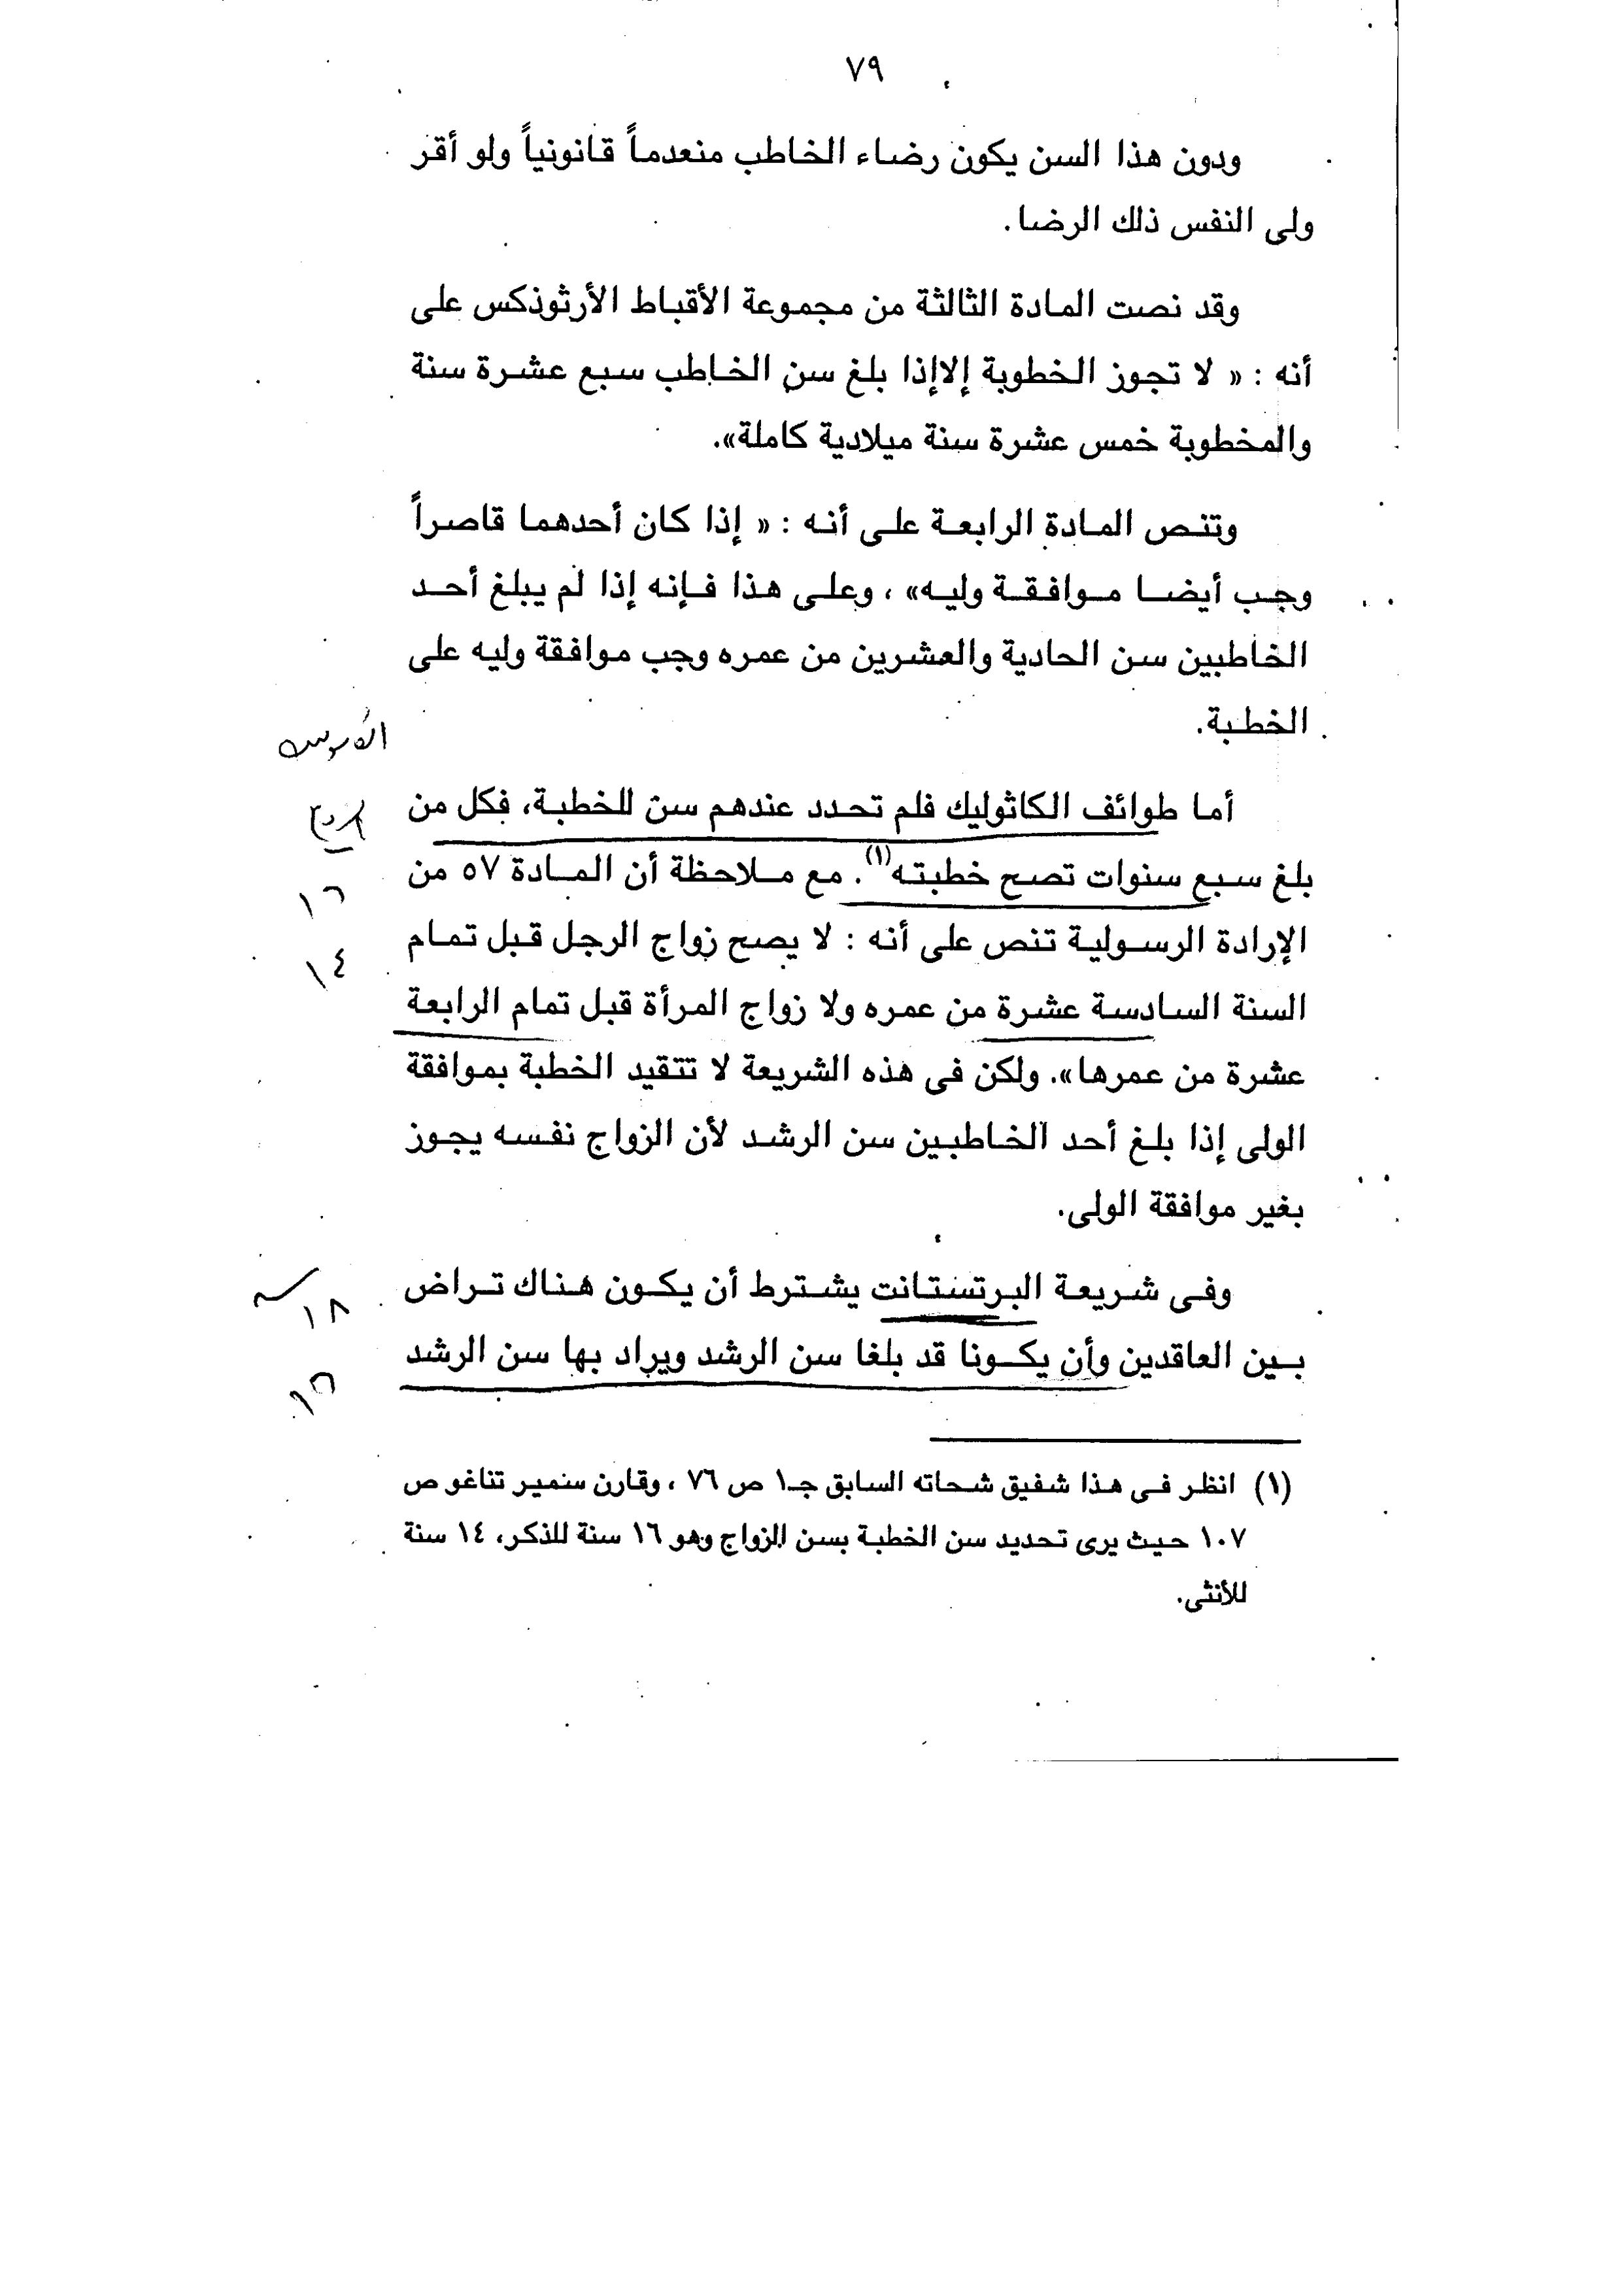 ٧٩
ودون هذا السن يكون رضاء الخاطب منعدماً قانونياً ولو أقر
ولى النفس ذلك الرضا.
وقد نصت المادة الثالثة من مجموعة الأقباط الأرثوذكس على
أنه : « لا تجوز الخطوبة إلاإذا بلغ سن الخاطب سبع عشرة سنة
والمخطوبة خمس عشرة سنة ميلادية كاملة».
وتنص المادة الرابعة على أنه : « إذا كان أحدهما قاصراً
وجب أيضا موافقة وليه» ، وعلى هذا فإنه إذا لم يبلغ أحد
الخاطبين سن الحادية والعشرين من عمره وجب موافقة وليه على
الخطبة.
أما طوائف الكاثوليك فلم تحدد عندهم سن للخطبة، فكل من
بلغ سبع سنوات تصح خطبته(١). مع ملاحظة أن المادة ٥٧ من
١٦
الإرادة الرسولية تنص على أنه : لا يصح زواج الرجل قبل تمام
١٤
السنة السادسة عشرة من عمره ولا زواج المرأة قبل تمام الرابعة
عشرة من عمرها». ولكن فى هذه الشريعة لا تتقيد الخطبة بموافقة
الولى إذا بلغ أحد الخاطبين سن الرشد لأن الزواج نفسه يجوز
بغير موافقة الولى.
وفى شريعة البرتستانت يشترط أن يكون هناك تراض
١٨
بين العاقدين وأن يكونا قد بلغا سن الرشد ويراد بها سن الرشد
١٦
(١) انظر فى هذا شفيق شحاته السابق جـ١ ص ٧٦ ، وقارن سنمير تناغو ص
١٠٧ حيث يرى تحديد سن الخطبة بسن الزواج وهو ١٦ سنة للذكر، ١٤ سنة
للأنثى.